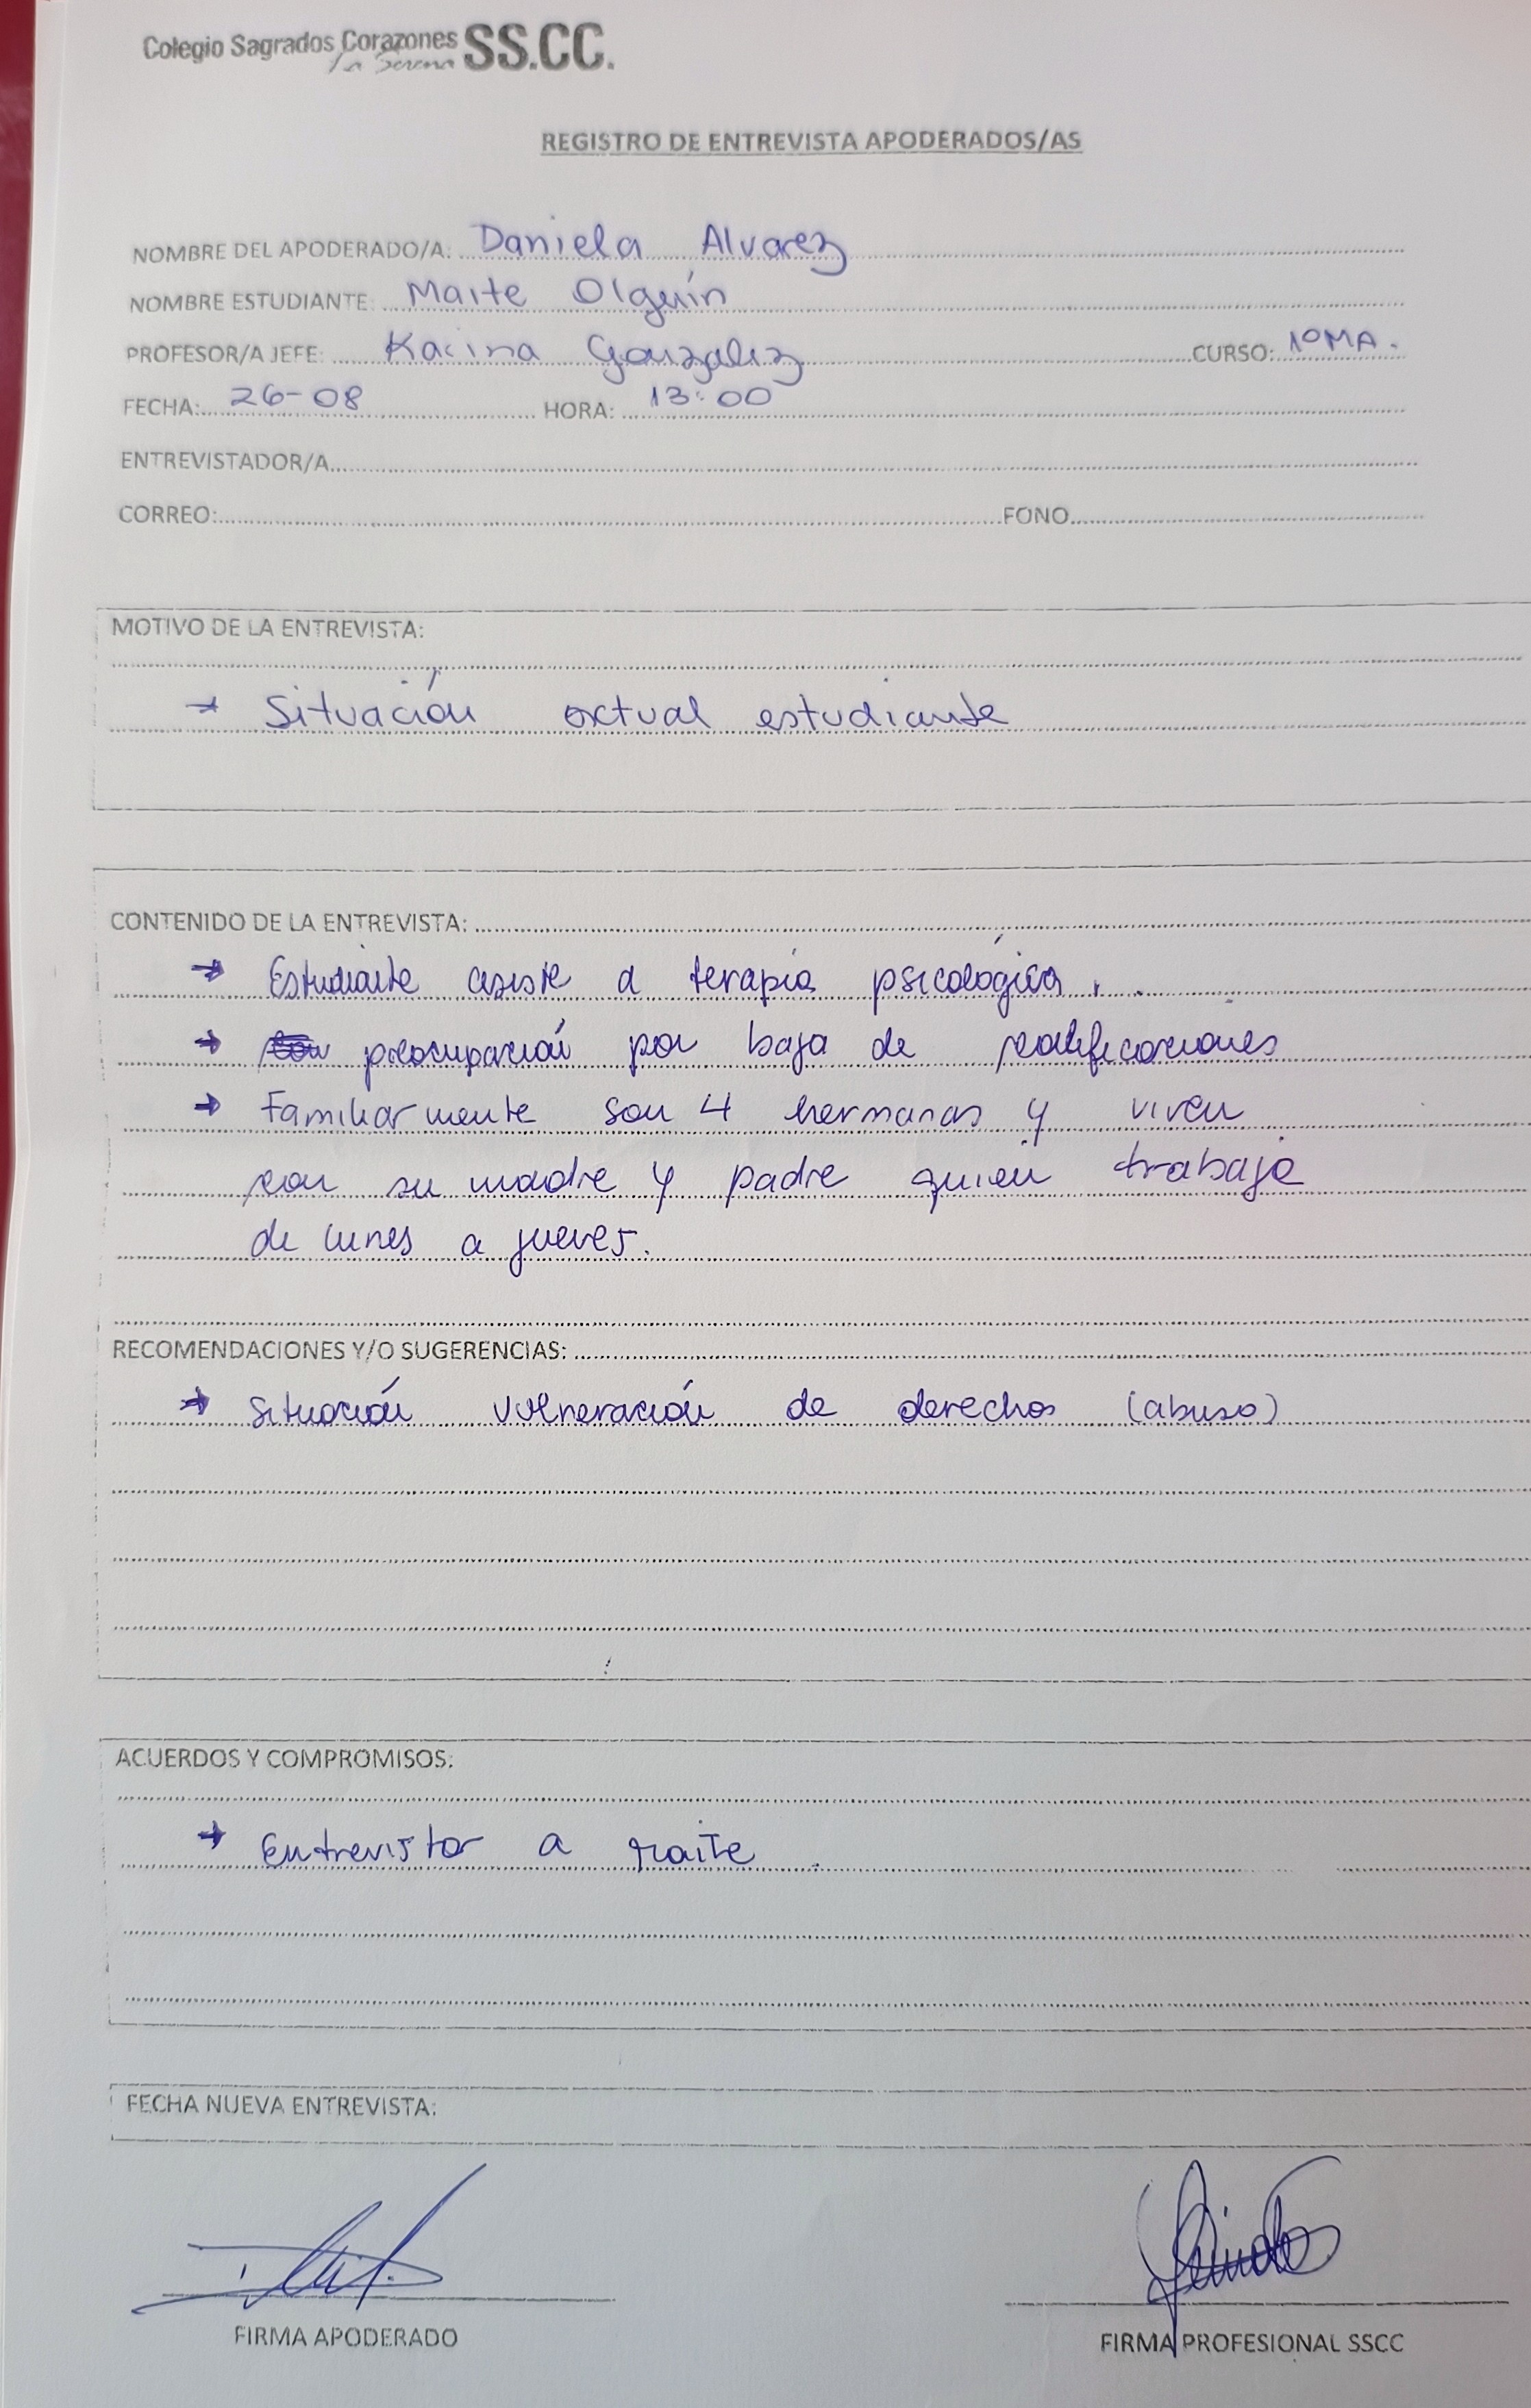 Colegio Sagrados Corazones SS.CC.
La Serena
REGISTRO DE ENTREVISTA APODERADOS/AS
NOMBRE DEL APODERADO/A: Daniela Alvarez
NOMBRE ESTUDIANTE: Maite Olguín
PROFESOR/A JEFE: Karina Gonzalez CURSO: 1ºMA.
FECHA: 26-08 HORA: 13:00
ENTREVISTADOR/A
CORREO: FONO
MOTIVO DE LA ENTREVISTA:
→ Situación actual estudiante
CONTENIDO DE LA ENTREVISTA:
→ Estudiante asiste a terapia psicológica.
→ preocupación por baja de calificaciones
→ Familiarmente son 4 hermanas y viven
con su madre y padre quien trabaja
de lunes a jueves.
RECOMENDACIONES Y/O SUGERENCIAS:
→ Situación vulneración de derechos (abuso)
ACUERDOS Y COMPROMISOS:
→ Entrevistar a Maite.
FECHA NUEVA ENTREVISTA:
FIRMA APODERADO
FIRMA PROFESIONAL SSCC